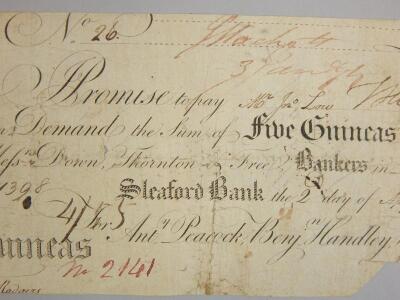 No. 26.
I Promise to pay Mr. Jno. Low
on Demand the Sum of Five Guineas
Messrs. Down, Thornton & Free, Bankers in
1398 Sleaford Bank the 2 day of
For Anty. Peacock, Benjn. Handley,
Guineas
No 2141